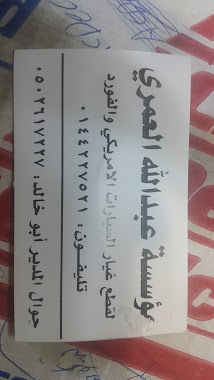 مؤسسة عبدالله العمري
لقطع غيار السيارات الامريكي والفورد
تليفون : ٠١٤٤٢٢٧٥٢١
جوال المدير أبو خالد : ٠٥٠٢٦١٧٢٢٧